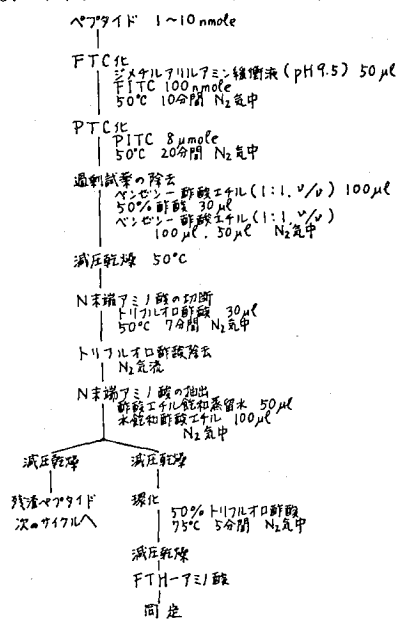 ペプタイド 1〜10 nmole
FTC化
ジメチルアリルアミン緩衝液 (pH 9.5) 50 μl
FITC 100 nmole
50℃ 10分間 N₂気中
PTC化
PITC 8 μmole
50℃ 20分間 N₂気中
過剰試薬の除去
ベンゼン-酢酸エチル (1:1, v/v) 100 μl
50% 酢酸 30 μl
ベンゼン-酢酸エチル (1:1, v/v)
100 μl, 50 μl N₂気中
減圧乾燥 50℃
N末端アミノ酸の切断
トリフルオロ酢酸 30 μl
50℃ 7分間 N₂気中
トリフルオロ酢酸除去
N₂気流
N末端アミノ酸の抽出
酢酸エチル飽和蒸留水 50 μl
水飽和酢酸エチル 100 μl
N₂気中
減圧乾燥 減圧乾燥
残渣ペプタイド 環化
次のサイクルへ 50% トリフルオロ酢酸
75℃ 5分間 N₂気中
減圧乾燥
FTH-アミノ酸
同定